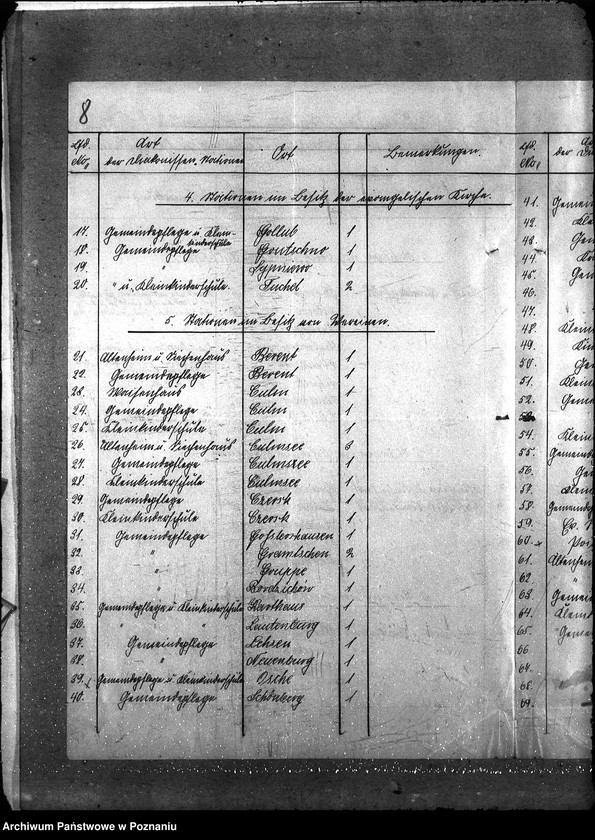 8
Lfd. No. Art der Diakonissen-Stationen Ort Bemerkungen. Lfd. No.
4. Stationen im Besitz der evangelischen Kirche.
17. Gemeindepflege u. Klein-kinderschule Gollub 1
18. Gemeindepflege 1
19. " 1
20. " u. Kleinkinderschule. Tuchel 2
5. Stationen im Besitz von Vereinen.
21. Altenheim u. Siechenhaus Berent 1
22. Gemeindepflege Berent 1
23. Waisenhaus Culm 1
24. Gemeindepflege Culm 1
25. Kleinkinderschule Culm 1
26. Altenheim u. Siechenhaus Culmsee 3
27. Gemeindepflege Culmsee 1
28. Kleinkinderschule Culmsee 1
29. Gemeindepflege Czersk 1
30. Kleinkinderschule Czersk 1
31. Gemeindepflege Goßlershausen 1
32. " Gramtschen 2
33. " Gruppe 1
34. " 1
35. Gemeindepflege u. Kleinkinderschule Karthaus 1
36. " " Lautenburg 1
37. Gemeindepflege Lessen 1
38. " Neuenburg 1
39. Gemeindepflege u. Kleinkinderschule Osche 1
40. Gemeindepflege Schönberg 1
41.
42.
43.
44.
45.
46.
47.
48.
49.
50.
51.
52.
53.
54.
55.
56.
57.
58.
59.
60.
61.
62.
63.
64.
65.
66
67.
68.
69.
Archiwum Państwowe w Poznaniu